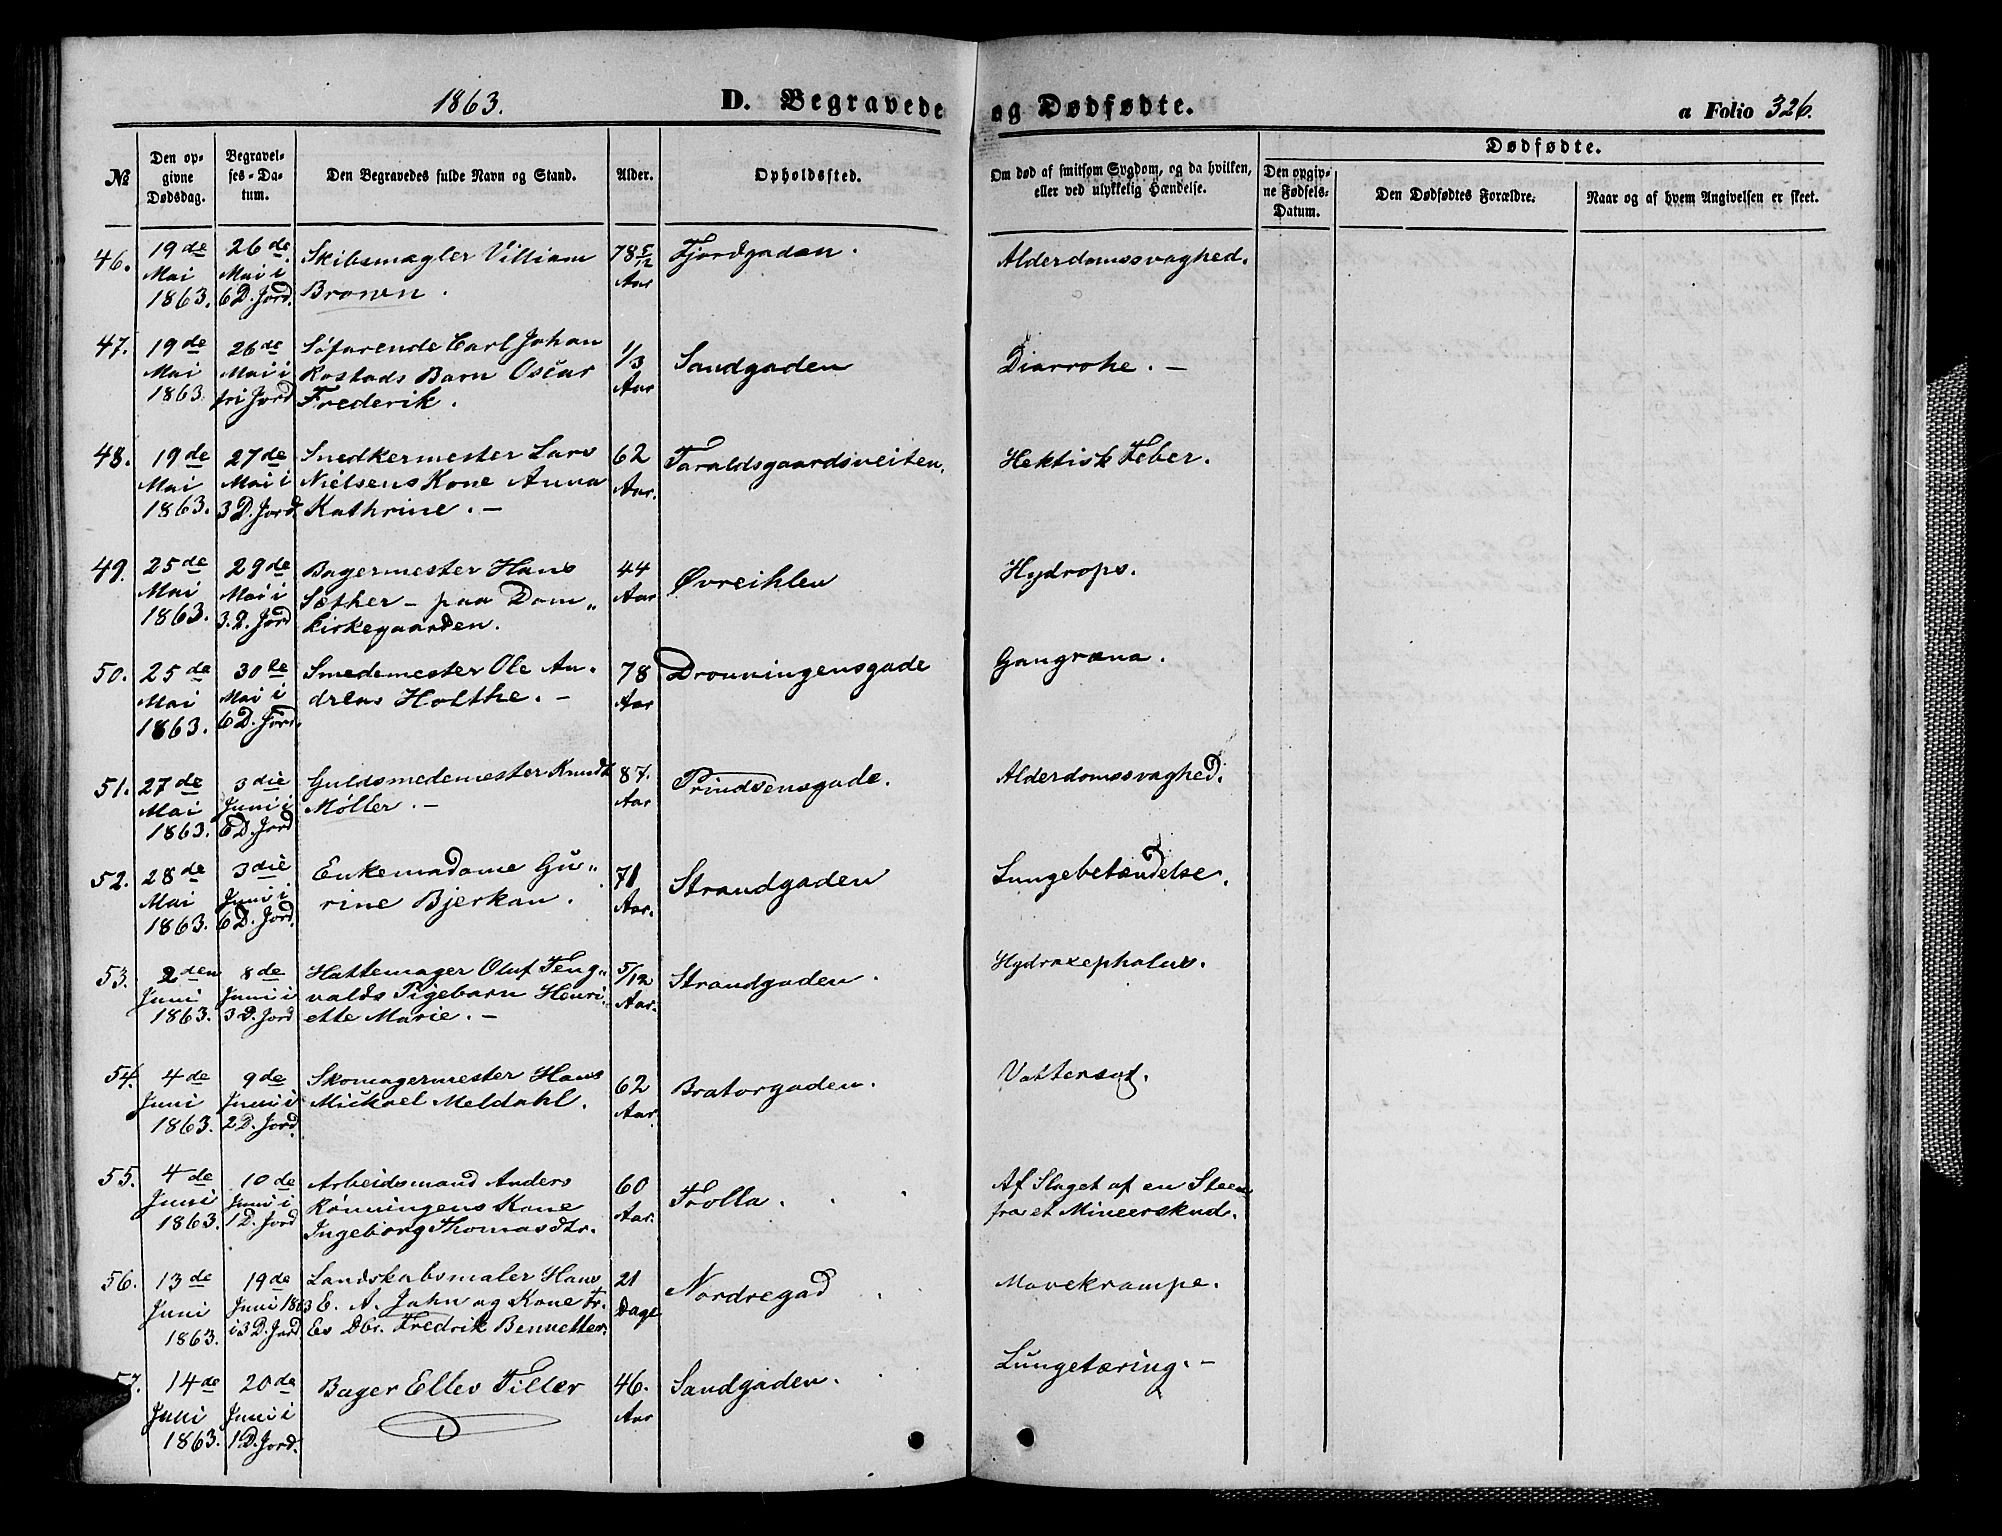 1863.
D. Begravede og Dødfødte.
a Folio 326.
№
Den opgivne Dødsdag.
Begravelses-Datum.
Den Begravedes fulde Navn og Stand.
Alder.
Opholdssted.
Om død af smitsom Sygdom, og da hvilken, eller ved ulykkelig Hændelse.
Dødfødte.
Den opgivne Fødsels-Datum.
Den Dødfødtes Forældre.
Naar og af hvem Angivelsen er skeet.
46. 19de Mai 1863. 26de Mai i 6 D. Jord. Skibsmægler Villiam Bronen. 78 5/12 Aar Fjordgaden. Alderdomssvaghed.
47. 19de Mai 1863. 26de Mai i fri Jord Søfarende Carl Johan Rostads Barn Oscar Frederik. 1/3 Aar Sandgaden Diarrohe. –
48. 19de Mai 1863. 27de Mai i 3 D. Jord. Snedkermester Lars Nielsens Kone Anna Kathrine. – 62 Aar. Taraldsgaardsveiten. Hektisk Feber.
49. 25de Mai 1863. 29de Mai i 3. D. Jord Bagermester Hans Sæther – paa Dom„kirkegaarden. 44 Aar Øvreihlen Hydrops.
50. 25de Mai 1863. 30te Mai i 6 D. Jord. Smedemester Ole Andreas Holthe. – 78 Aar Dronningensgade Gangræna.
51. 27de Mai 1863. 3die Juni i 6 D. Jord Guldsmedemester Knudt Møller. – 87. Aar Prindsensgade. Alderdomssvaghed.
52. 28de Mai 1863. 3die Juni i 6 D. Jord. Enkemadame Gu„rine Bjerkan. 71 Aar. Strandgaden Lungebetændelse.
53. 2den Juni 1863. 8de Juni i 3 D. Jord Hattemager Oluf Teng„valds Pigebarn Henriette Marie. – 5/12 Aar. Strandgaden. Hydrocephalus.
54. 4de Juni 1863. 9de Juni i 2 D. Jord. Skomagermester Hans Mickael Meldahl. 62 Aar. Bratørgaden. Vattersot.
55. 4de Juni 1863. 10de Juni i 1 D. Jord Arbeidsmand Anders Rønningens Kone Ingeborg Thomasdtr. 60 Aar. Trolla. Af Slaget af en Steen fra et Mineerskud.
56. 13de Juni 1863. 19de Juni 1863 i 3 D. Jord. Landskabsmaler Hans E. A. Jahn og Kone Fr. Es Dbr. Fredrik Bennetter. 21 Dage Nordregad Mavekrampe.
57. 14de Juni 1863. 20de Juni i 1 D. Jord. Bager Ellev Tiller 46. Aar Sandgaden. Lungetæring. –